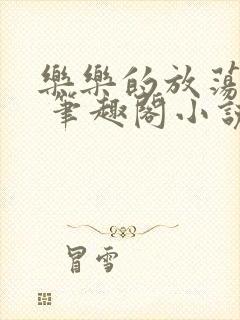 樂樂的放蕩
筆趣閣小說
冒雪